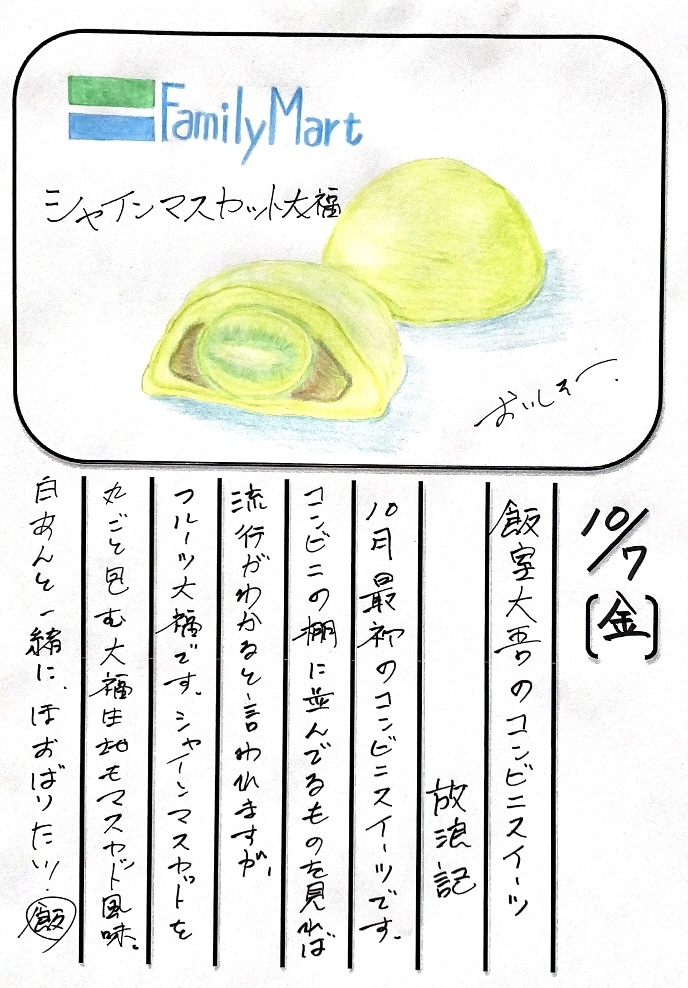 FamilyMart
シャインマスカット大福
おいしそー.
10/7
[金]
飯室大吾のコンビニスイーツ
放浪記
10月最初のコンビニスイーツです。
コンビニの棚に並んでるものを見れば
流行がわかると言われますが、
フルーツ大福です。シャインマスカットを
丸ごと包む大福生地もマスカット風味。
白あんと一緒に、ほおばりたい!
飯